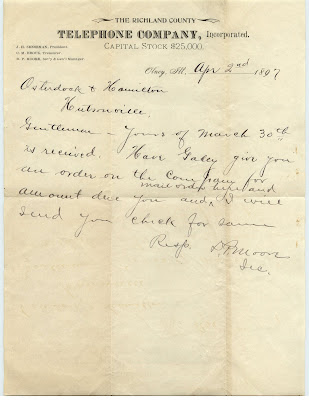 THE RICHLAND COUNTY
TELEPHONE COMPANY, Incorporated.
CAPITAL STOCK $25,000.
Olney, Ill. Apr 2nd 1897
Osterdock & Hamilton
Hutsonville.
Gentlemen - Yours of March 30th
is received. Have Galey give you
an order on the Company for
mail order here and
amount due you and I will
send you check for same
Resp.
Moore
Sec.